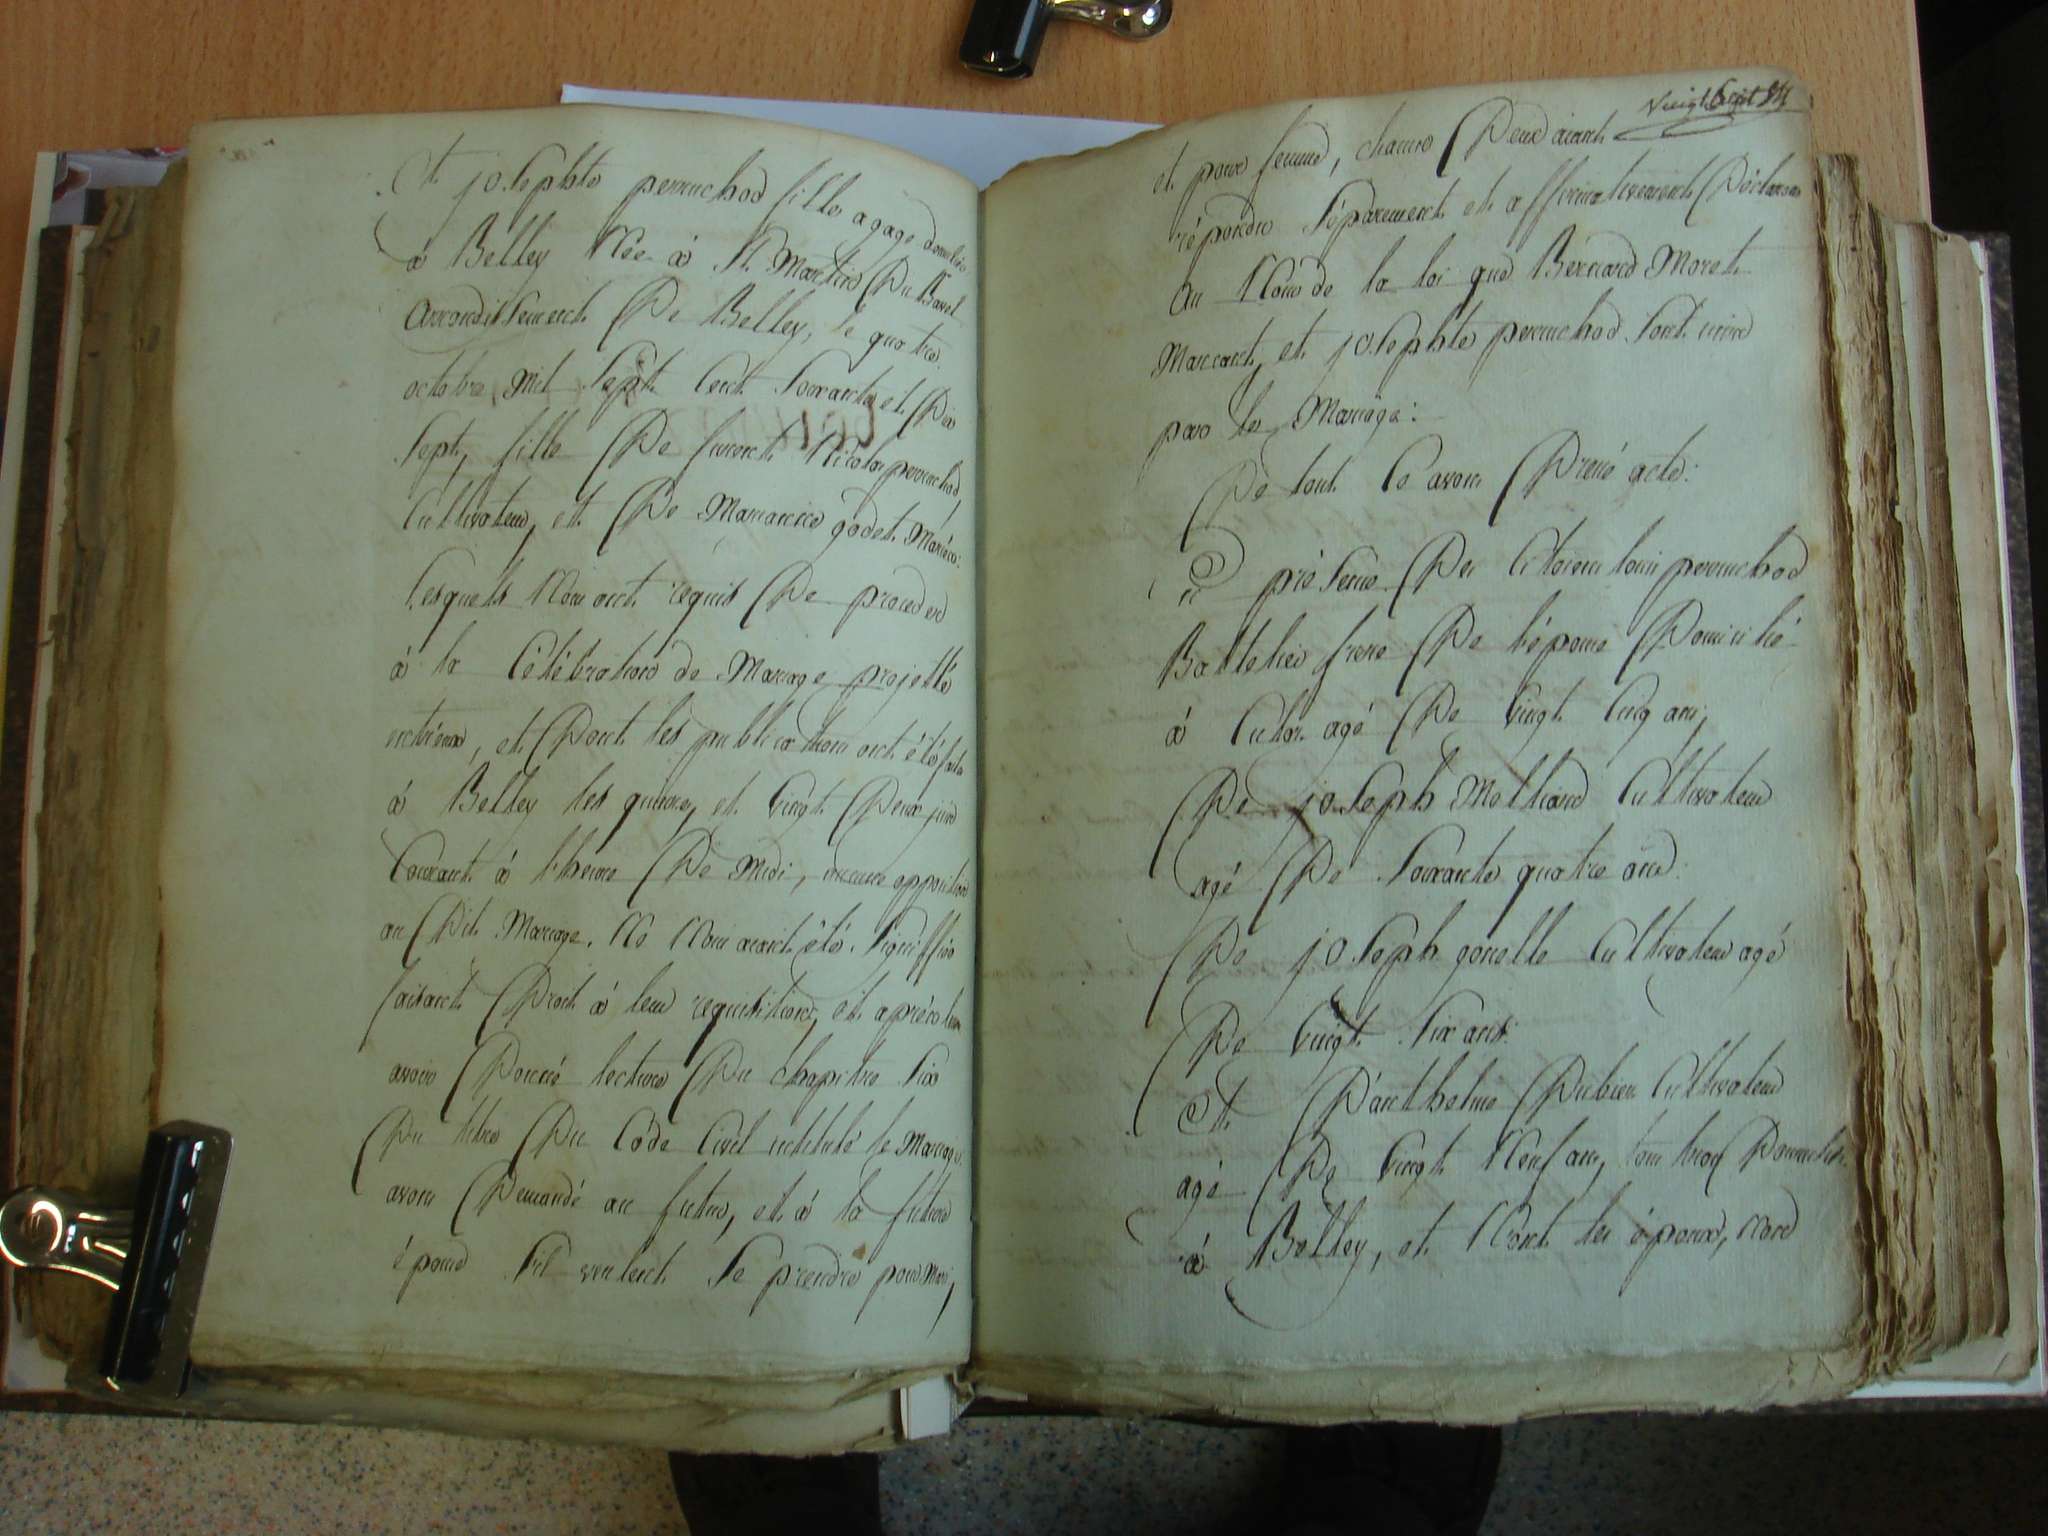 Et josephte perruchod fille a gage domiliée
à Belley Née à St. Martin Du Bavel
arrondissement De Belley, le quatre
octobre Mil Sept Cent Soixante et Dix
Sept, fille De furent Nicolas perruchod,
Cultivateur, et De Marianne godet Mariéee:
lesquels Nous ont requis De proceder
à la Célébration de Mariage projetté
entr'eux, et Dont les publications ont été faite
à Belley les quinze, et vingt Deux juin
Courant à l'heure De Midi, aucune opposition
au Dit Mariage. Ne Nous aiant été Signiffiée
faisant Droit à leur requisition, et après leur
avoir Donné lecture Du chapitre Six
Du titre Du Code Civil intitulé le Mariage.
avons Demandé au futur, et à la future
épouse S'il veulent Se prendre pour Mari,
Vingt Sept
et pour femme, chacun D'eux aiant
répondu Séparement et affirmativement Déclarons
au Nom de la loi que Bernard Moret
Marcant, et josephte perruchod Sont unis
par le Mariage:
De tout Ce avons Dressé acte:
En présence Des Citoiens louis perruchod
Battelier frere De l'épouse Domicilié
à Culoz agé De vingt Cinq ans,
De joseph Molliard Cultivateur
agé De Soixante quatre ans:
De joseph gonelle Cultivateur agé
De vingt Six ans:
Et D'anthelme Dubien Cultivateur
agé De vingt Neuf ans, tous trois Domiciliés
à Belley, et N'ont les époux, non